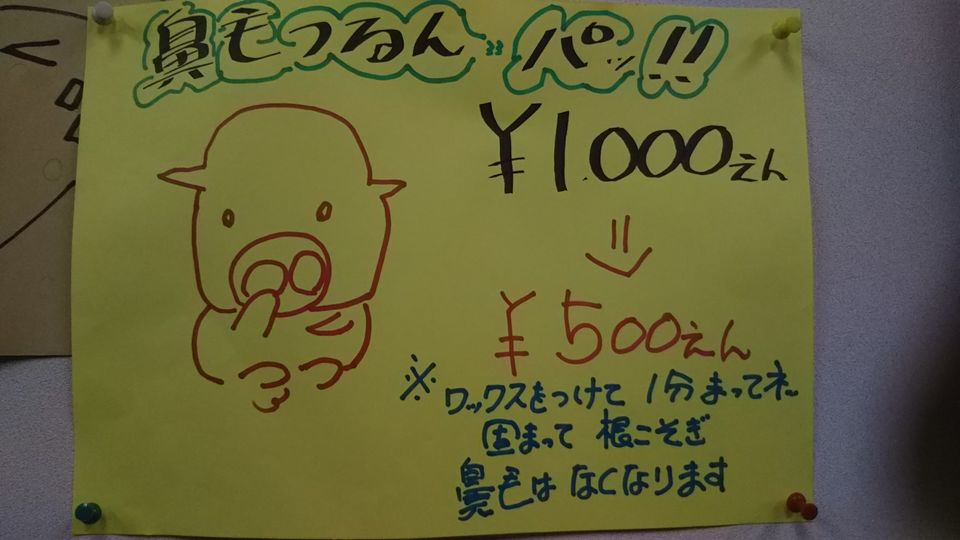 鼻毛つるん〃パッ!!
¥1.000えん
¥500えん
※ワックスをつけて 1分まってネ
固まって 根こそぎ
鼻毛は なくなります